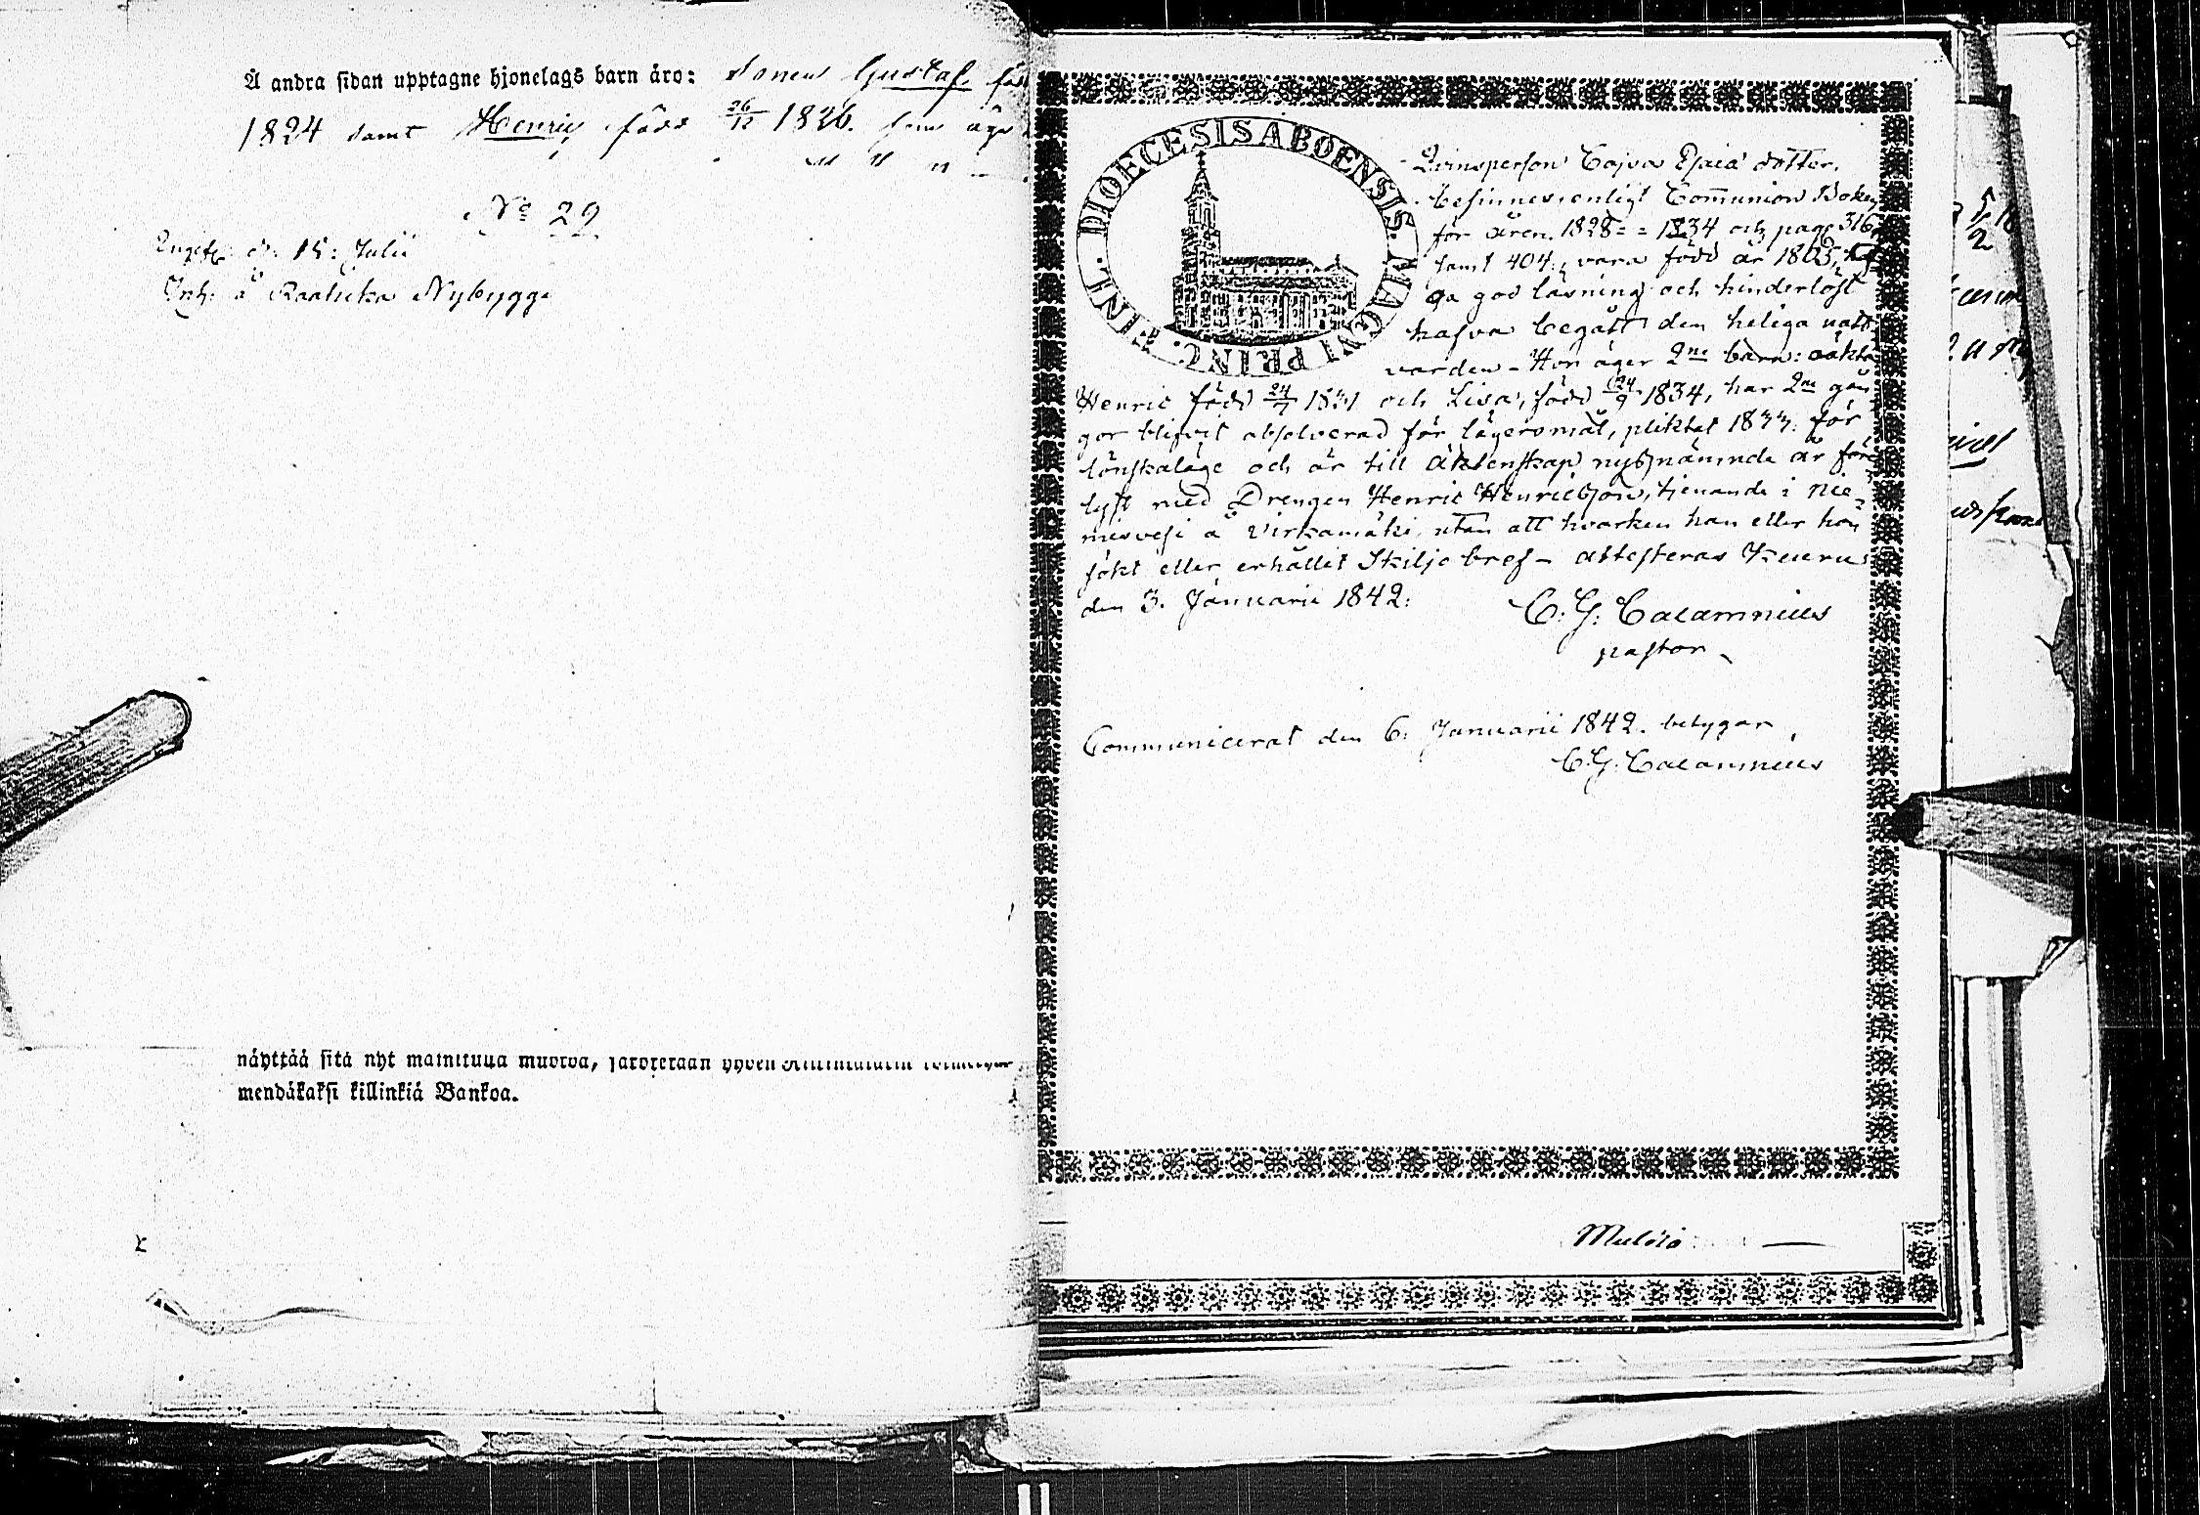 Å andra sidan upptagne hjonelags barn äro: Sonen Gustaf föd
1824 samt Henric född 26/12 1826. som äga
" " "
No 29
d. 15: Julii
Inh: å Nybygge
näyttää sitä nyt mainitulla muotoa,
mendäkaksi killinkiä Bankoa.
DIOECESIS ABOENSIS. MAGNI PRINC. FINL.
Qvinsperson Cajsa Esaiä dotter,
befinnes, enligt Communion Boken
för åren 1828 = = 1834 och pagg 316
samt 404, vara född år 1803,
ga god läsning och hinderlöst
hafva begått den heliga natt-
varden - Hon äger 2ne barn: oäkta
Henric född 24/7 1831 och Lisa, född 24/9 1834, har 2ne gån
gor blifvit absolverad för lägersmål, pliktat 1833. för
lönskaläge och är till äktenskap nyssnämnde år för
lyst med Drengen Henric Henricsson, tjenande i Nie-
misvesi å Virkamäki, utan att hvarken han eller hon
sökt eller erhållit Skiljobref - attesteras Keuru
den 3. Januarii 1842:
C. G. Calamnius
pastor
Communicerat den 6. Januarii 1842. betygar
C. G. Calamnius